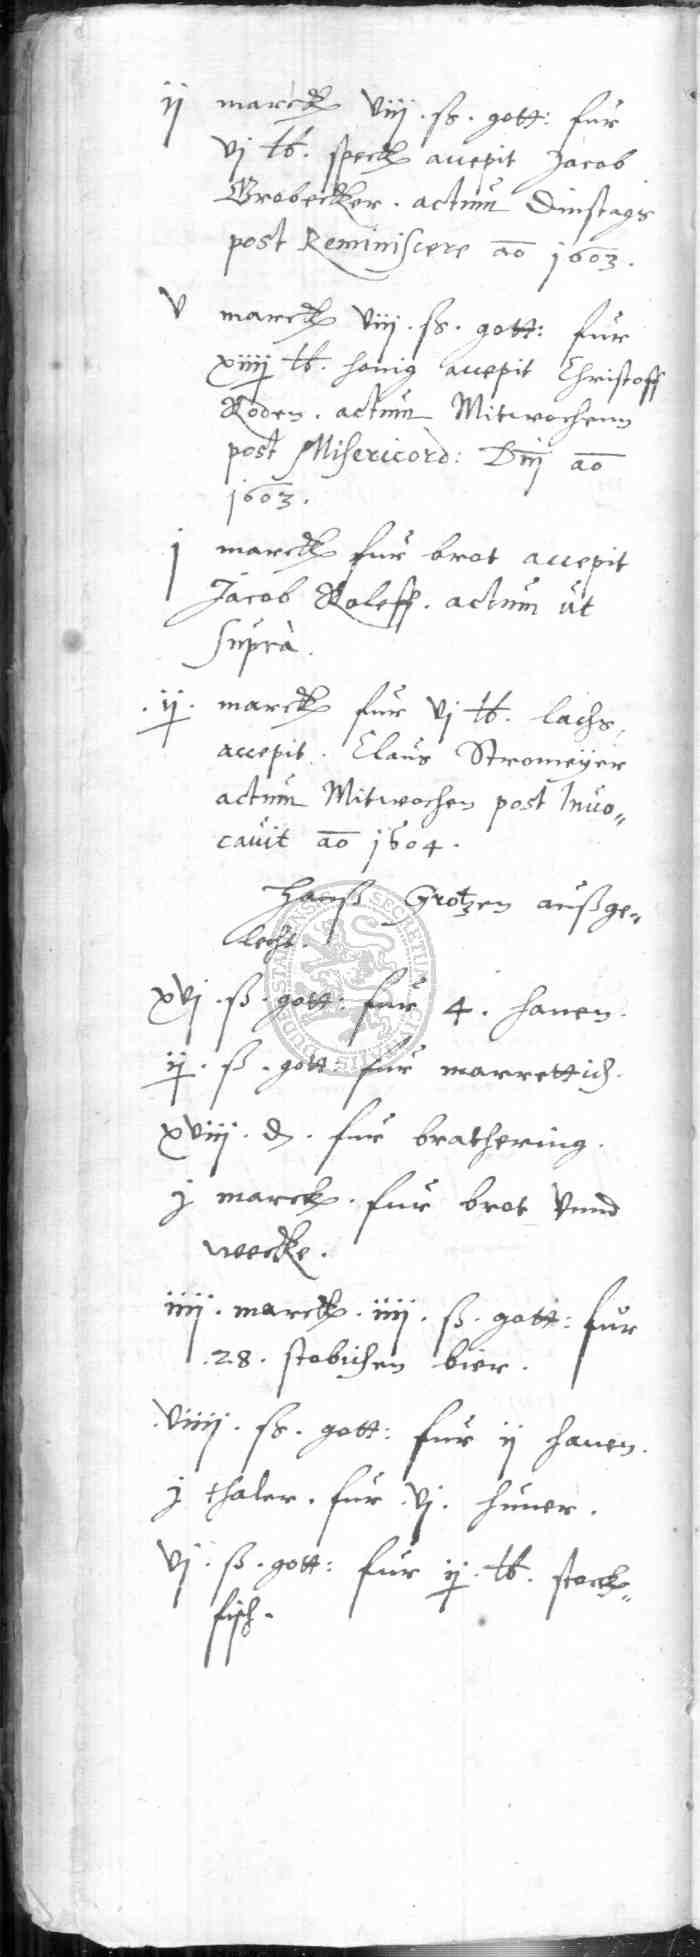 ij marck viij . ß . gott: fur
vj lb . speck accepit Jacob
Grobecker . actum Dinstags
post Reminiscere ao 1603 .
v marck viij . ß . gott: fur
xiiij lb . honig accepit Christoff
Koden . actum Mitwochenn
post Misericord: Dnj ao
1603 .
j marck fur brot accepit
Jacob Roleff . actum ut
supra .
. ij . marck fur vj lb . lachs,
accepit . Claus Stromeyer
actum Mitwochen post Invo„
cavit ao 1604 .
Hanß Grotzen außge„
lecht .
xvj . ß . gott: fur 4 . hanen .
ij . ß . gott: fur marrettich .
xviij . d . fur brathering .
j marck . fur brot vnnd
weecke .
iiij . marck . iiij . ß . gott: fur
. 28 . stobichen bier .
. viiij . ß . gott: fur ij hanen .
j thaler . fur . vj . huner .
vj . ß . gott: fur ij . lb . stock„
fisch .